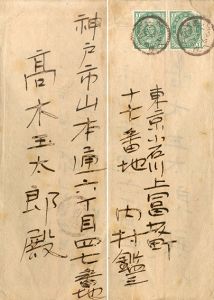 東京小石川上富坂町
十七番地
内村鑑三
神戸市山本通六丁目四七番地
高木玉太郎殿